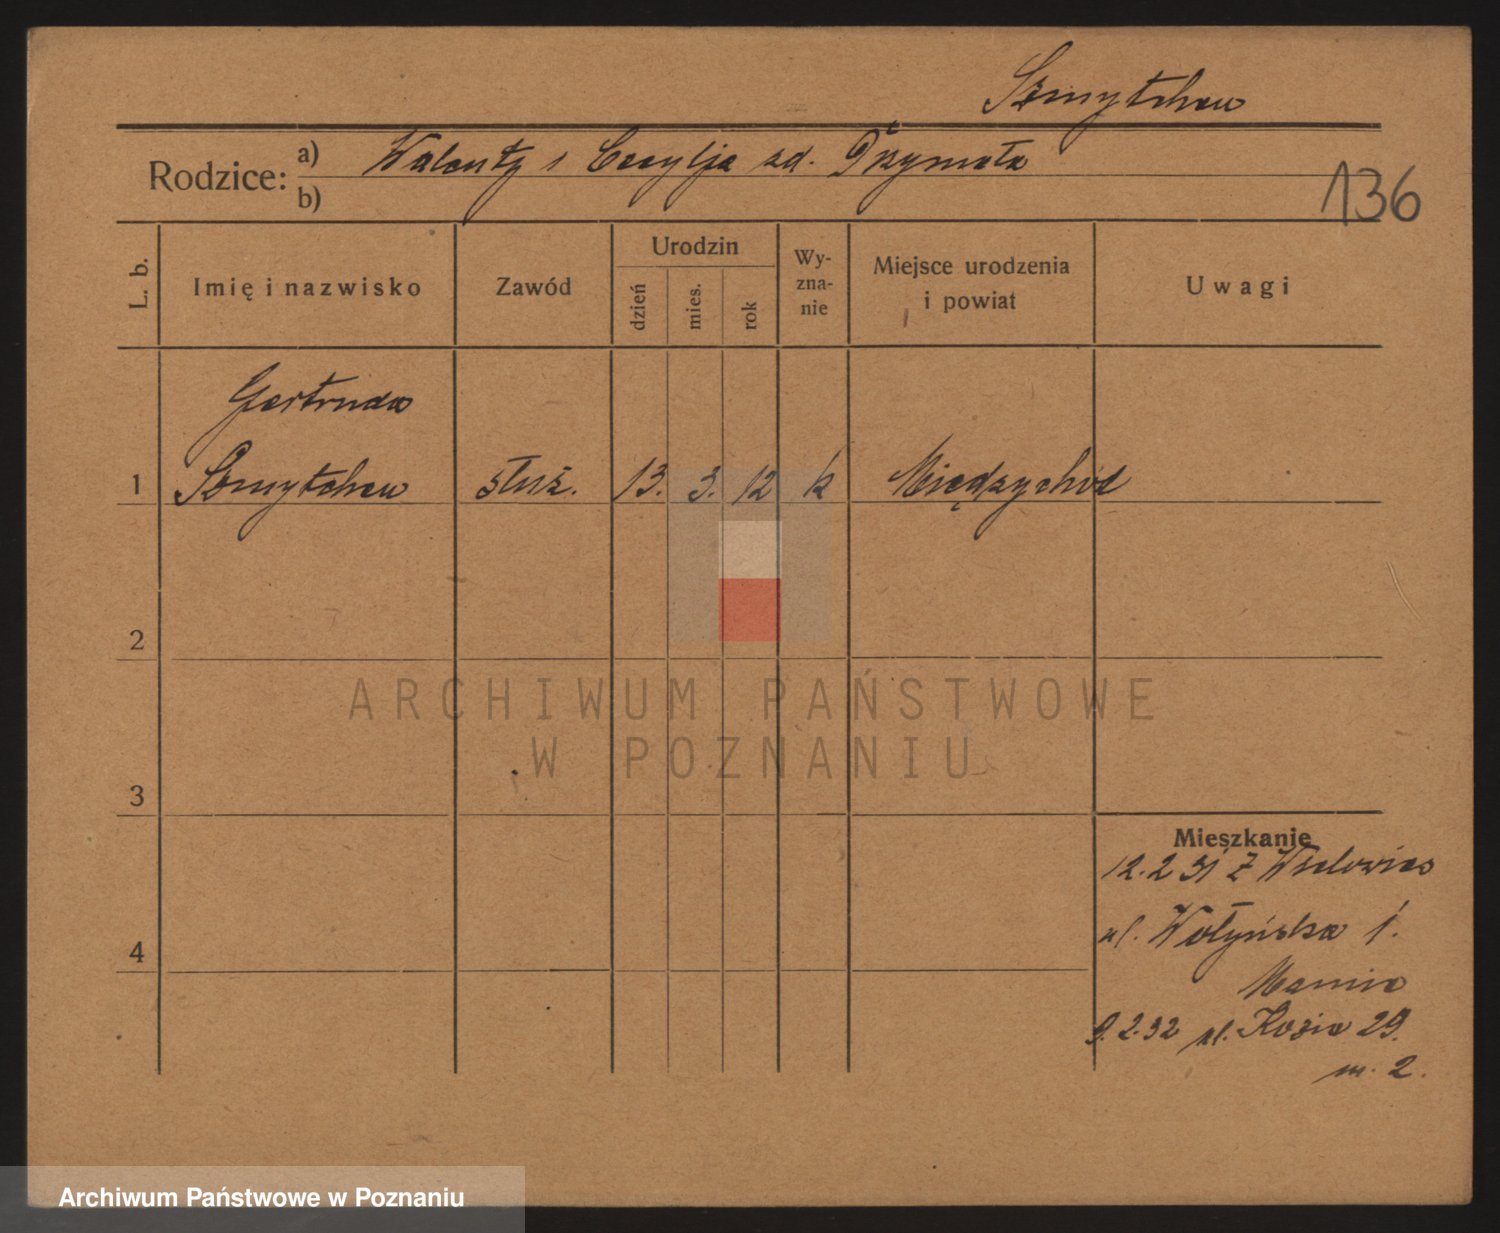 Szmytchen
Rodzice: a) Walenty i Cecylja zd. Przymała
b)
136
L. b.
Imię i nazwisko
Zawód
Urodzin
dzień
mies.
rok
Wy-
zna-
nie
Miejsce urodzenia
i powiat
Uwagi
Gertruda
1 Szmytchen służ. 13. 3. 12 k Międzychód
2
3
4
Mieszkanie
12.2 31 Z
ul. Wołyńska 1.
9.2.32 ul. Kozia 29.
m. 2.
ARCHIWUM PAŃSTWOWE
W POZNANIU
Archiwum Państwowe w Poznaniu